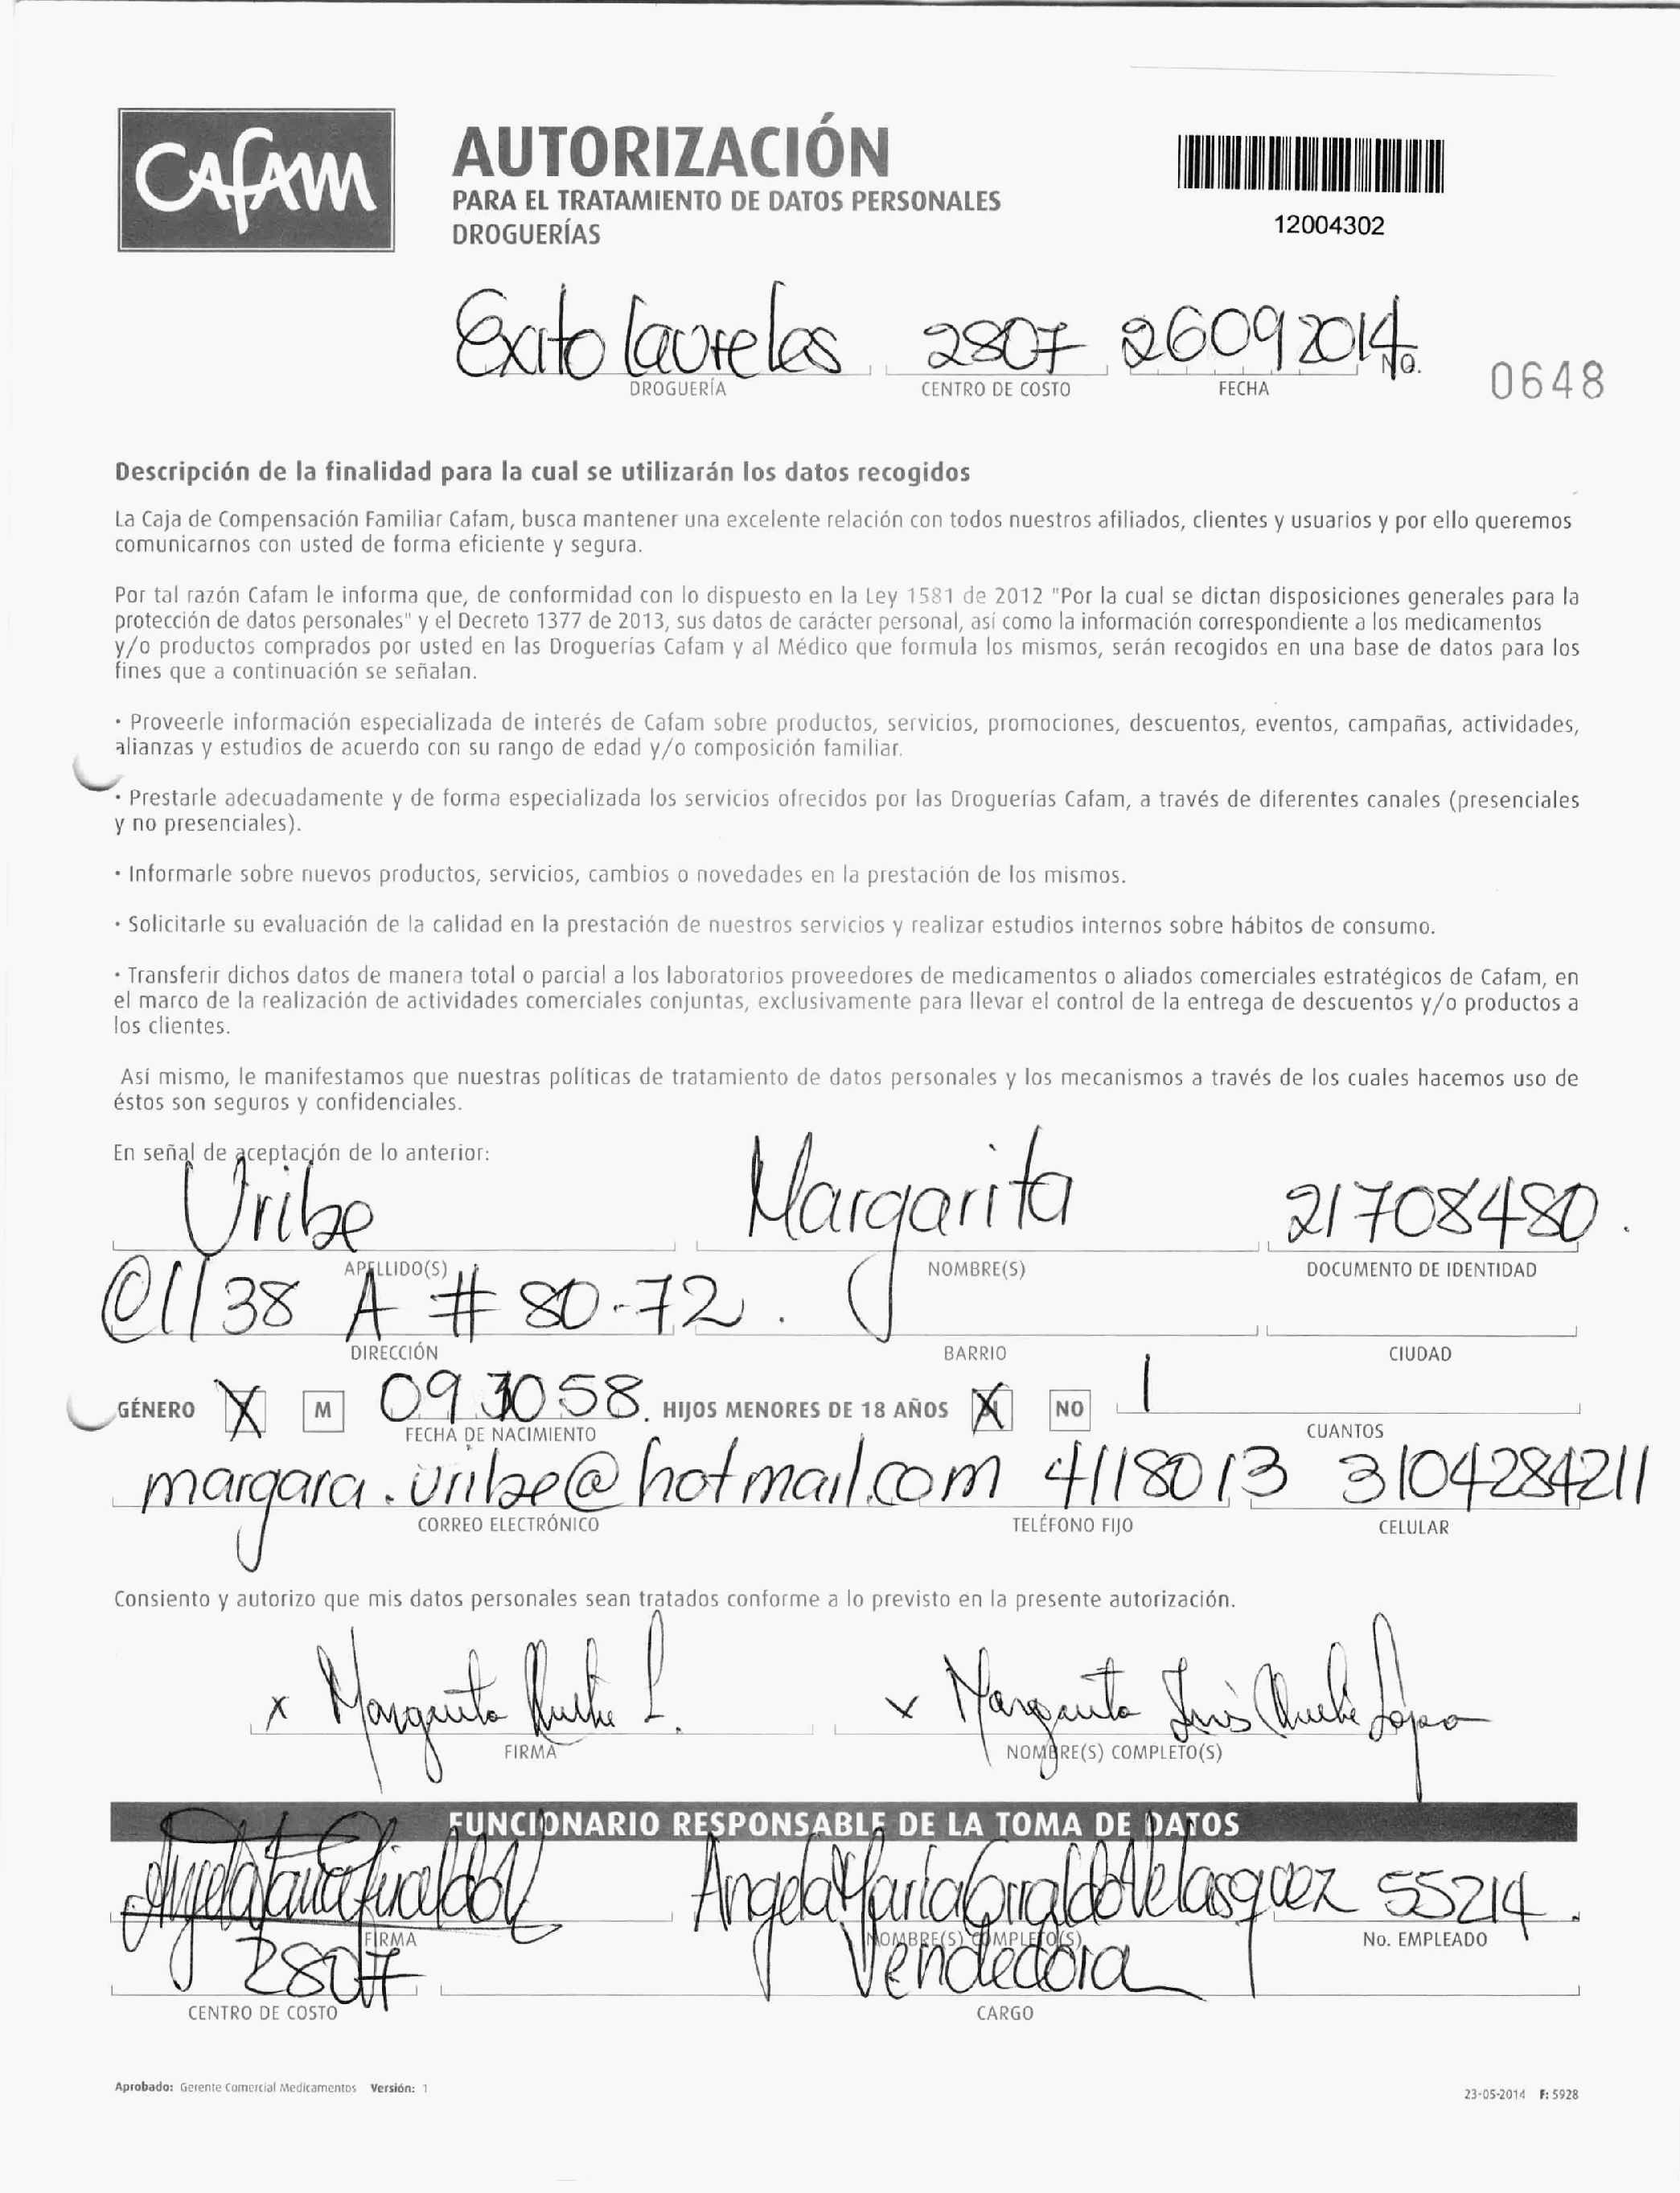 CAFAM
AUTORIZACIÓN
PARA EL TRATAMIENTO DE DATOS PERSONALES
DROGUERÍAS
12004302
Exito Laureles 2807 26092014
DROGUERÍA CENTRO DE COSTO FECHA No. 0648
Descripción de la finalidad para la cual se utilizarán los datos recogidos
La Caja de Compensación Familiar Cafam, busca mantener una excelente relación con todos nuestros afiliados, clientes y usuarios y por ello queremos
comunicarnos con usted de forma eficiente y segura.
Por tal razón Cafam le informa que, de conformidad con lo dispuesto en la Ley 1581 de 2012 "Por la cual se dictan disposiciones generales para la
protección de datos personales" y el Decreto 1377 de 2013, sus datos de carácter personal, así como la información correspondiente a los medicamentos
y/o productos comprados por usted en las Droguerías Cafam y al Médico que formula los mismos, serán recogidos en una base de datos para los
fines que a continuación se señalan.
· Proveerle información especializada de interés de Cafam sobre productos, servicios, promociones, descuentos, eventos, campañas, actividades,
alianzas y estudios de acuerdo con su rango de edad y/o composición familiar.
· Prestarle adecuadamente y de forma especializada los servicios ofrecidos por las Droguerías Cafam, a través de diferentes canales (presenciales
y no presenciales).
· Informarle sobre nuevos productos, servicios, cambios o novedades en la prestación de los mismos.
· Solicitarle su evaluación de la calidad en la prestación de nuestros servicios y realizar estudios internos sobre hábitos de consumo.
· Transferir dichos datos de manera total o parcial a los laboratorios proveedores de medicamentos o aliados comerciales estratégicos de Cafam, en
el marco de la realización de actividades comerciales conjuntas, exclusivamente para llevar el control de la entrega de descuentos y/o productos a
los clientes.
Así mismo, le manifestamos que nuestras políticas de tratamiento de datos personales y los mecanismos a través de los cuales hacemos uso de
éstos son seguros y confidenciales.
En señal de aceptación de lo anterior:
Uribe Margarita 21708480.
APELLIDO(S) NOMBRE(S) DOCUMENTO DE IDENTIDAD
Cll 38 A # 80-72.
DIRECCIÓN BARRIO CIUDAD
GÉNERO X M 09 30 58. HIJOS MENORES DE 18 AÑOS X NO 1
FECHA DE NACIMIENTO CUANTOS
margara.uribe@hotmail.com 4118013 3104284211
CORREO ELECTRÓNICO TELÉFONO FIJO CELULAR
Consiento y autorizo que mis datos personales sean tratados conforme a lo previsto en la presente autorización.
x Margarita L. x Margarita Inés
FIRMA NOMBRE(S) COMPLETO(S)
FUNCIONARIO RESPONSABLE DE LA TOMA DE DATOS
Angela Maria Giraldo Velasquez 55214.
FIRMA NOMBRE(S) COMPLETO(S) No. EMPLEADO
2807 Vendedora
CENTRO DE COSTO CARGO
Aprobado: Gerente Comercial Medicamentos Versión: 1
23-05-2014 F: 5928